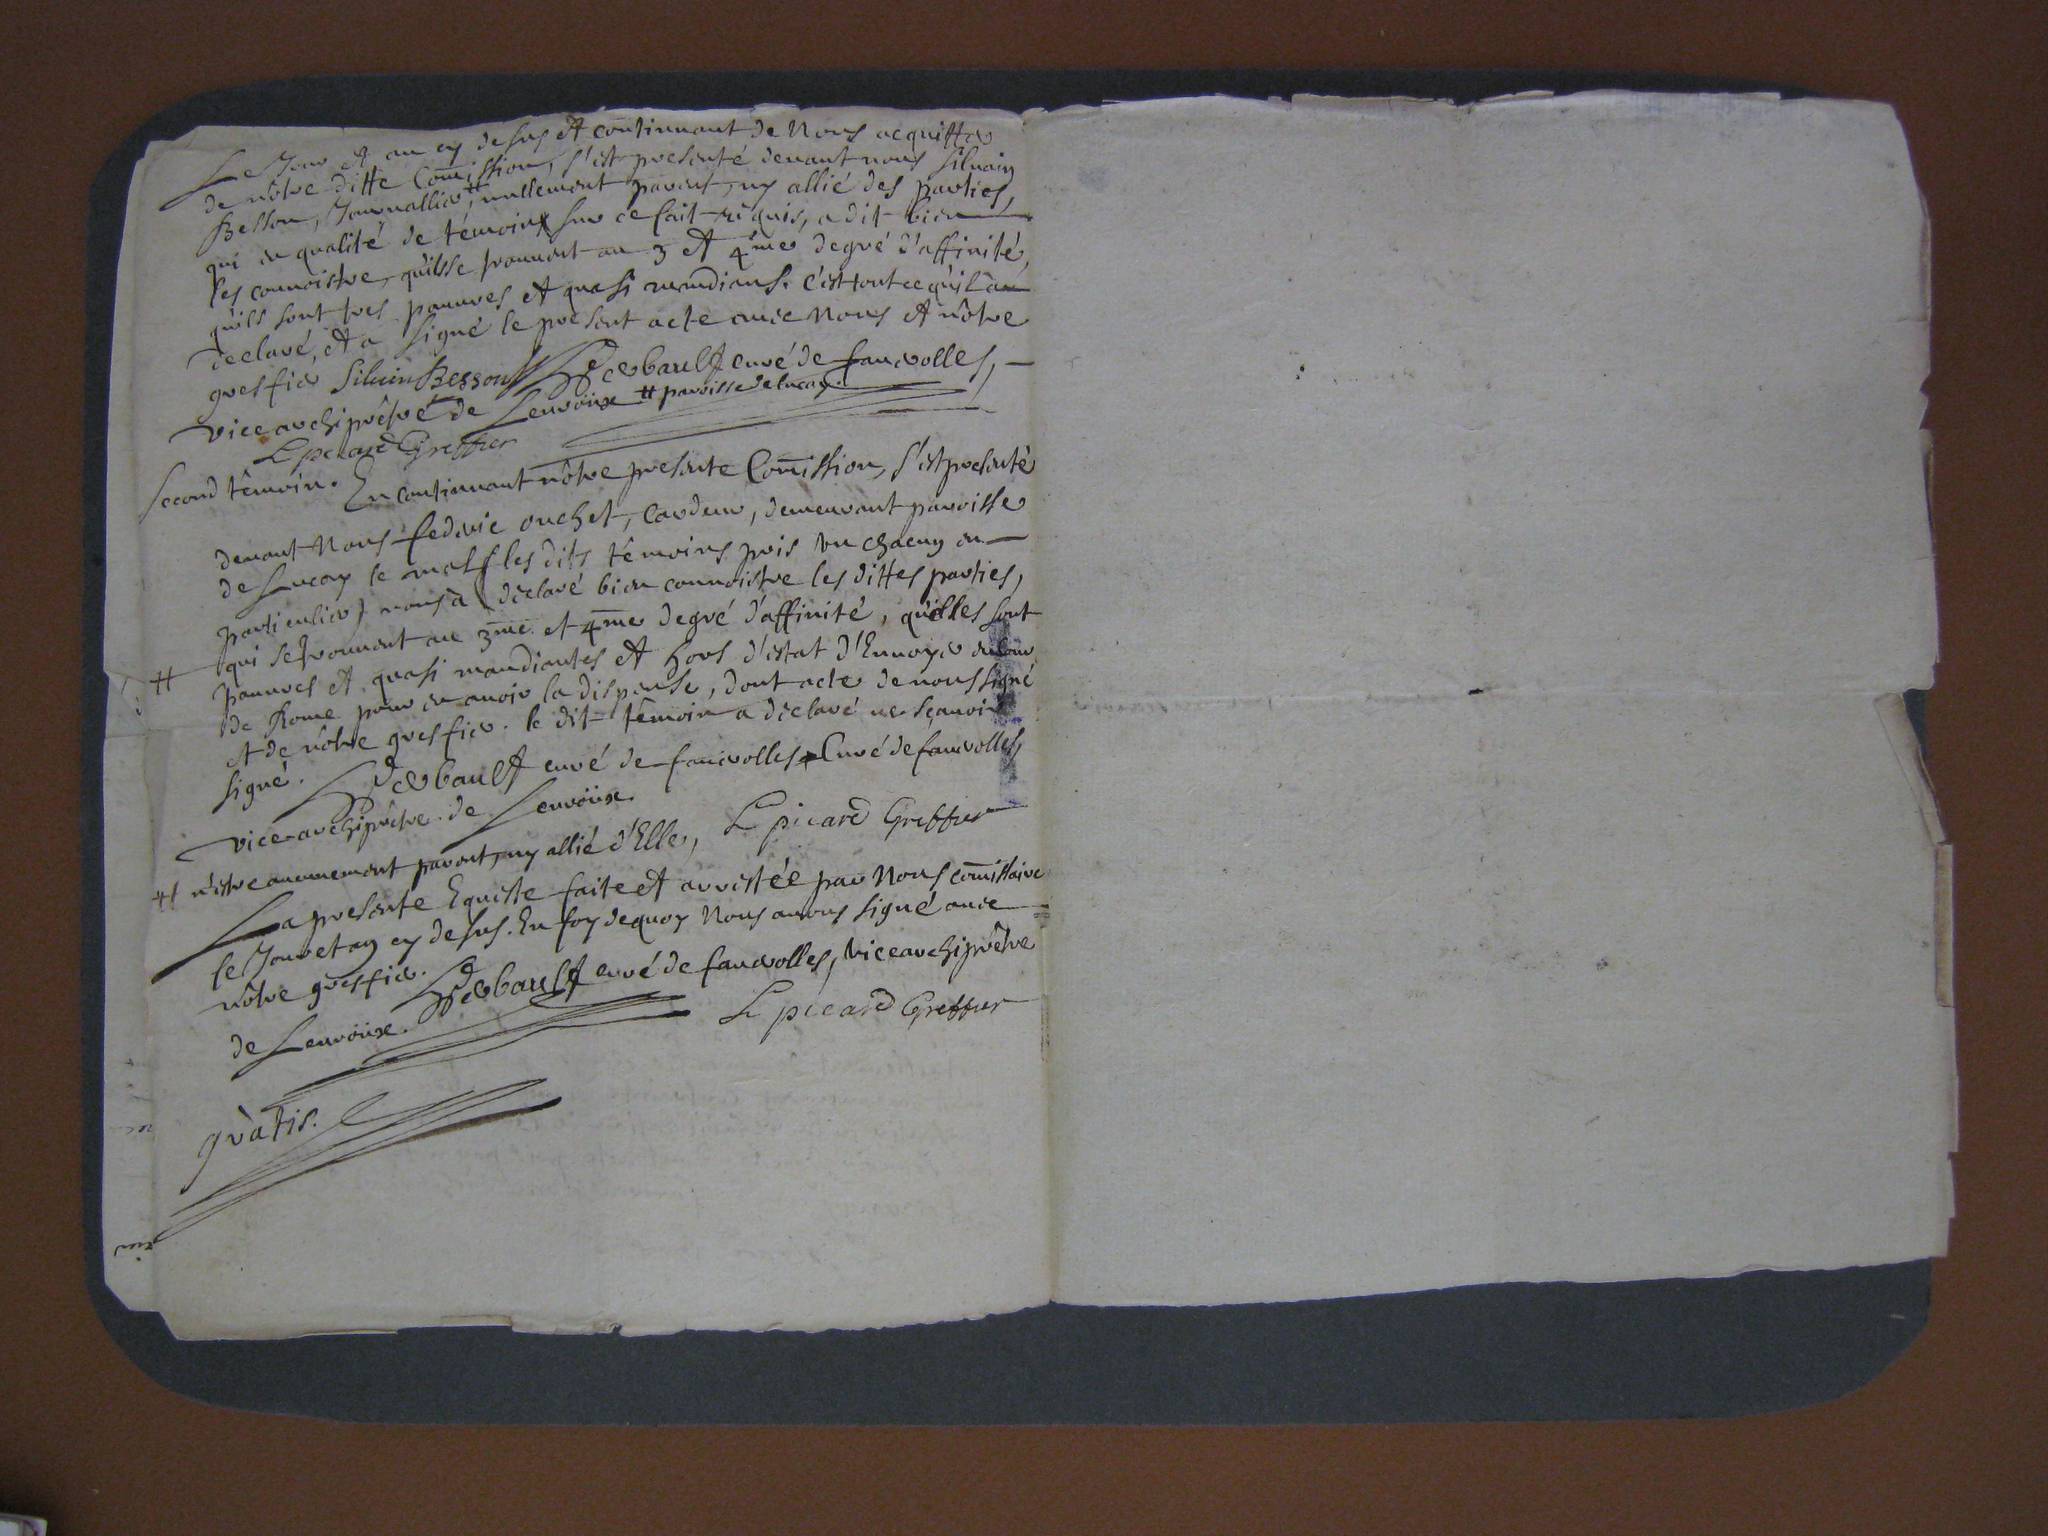 Le Jour et an cy desus et continuant de Nous acquitter
de nôtre ditte Comission, s'est presenté devant nous silvain
Besson, Journallier, # nullement parent, ny allié des parties,
qui en qualité de témoin sur ce fait requis, a dit bien
les connoistre, qu'ils se trouvent au 3 et 4me degré d'affinité,
qu'ils sont tres pauvres et quasi mendians. c'est tout ce qu'il a
declaré, et a signé le present acte avec Nous et nôtre
greffier Siluin Besson Herbault curé de faverolles,
vice archiprêtré de Levroüx # paroisse de lucay.
Lepicard Greffier
second témoin. En continuant nôtre presente Comission, s'est presenté
devant Nous federic ouchet, Cardeur, demeurant paroisse
de Lucay le mal (les dits témoins pris un chacun en
particulier) nous a declaré bien connoistre les dittes parties,
# qui se trouvent au 3me et 4me degré d'affinité, qu'elles sont
pauvres et quasi mandiantes et hors d'estat d'Envoyer en Cour
de Rome pour en avoir la dispense, dont acte de nous signé
et de nôtre greffier. le dit témoin a declaré ne sçavoir
signé. Herbault curé de faverolles Curé de faverolles
vice-archiprêtre de Levroüx.
# n'estre aucunement parent, ny allié d'Elles, Lepicard Greffier
La presente Equeste faite et arrestée par Nous comissaire
le Jour et an cy desus. En foy de quoy Nous avons signé avec
nôtre greffier. Herbault curé de faverolles, vice archiprêtre
de Levroüx. Lepicard Greffier
gratis.